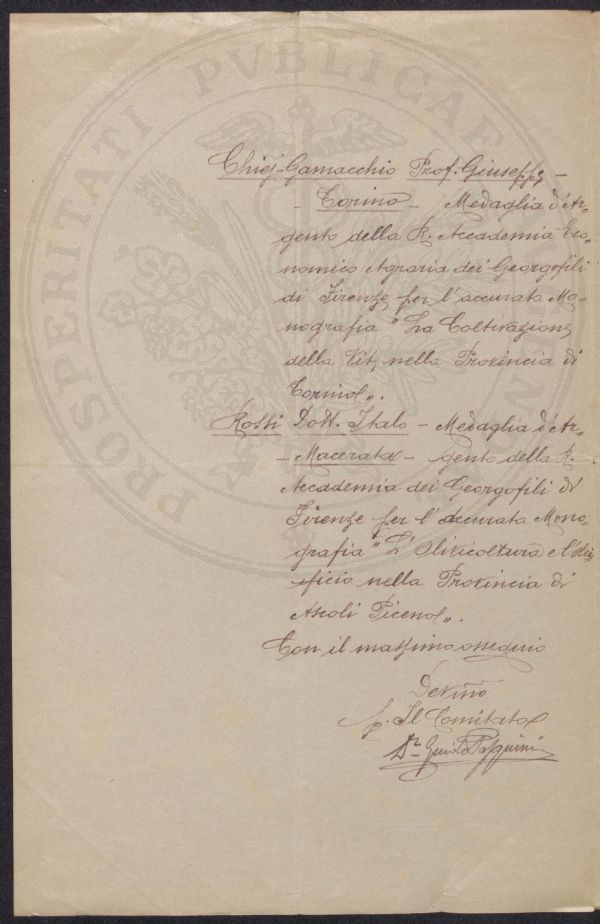 PROSPERITATI PVBLICAE
Chiej-Gamacchio Prof. Giuseppe -
- Torino - Medaglia d'Ar„
gento della R. Accademia Eco„
nomico Agraria dei Georgofili
di Firenze per l'accurata Mo„
nografia "La Coltivazione
della Vite nella Provincia di
Torino„.
Rossi Dott. Italo - Medaglia d'Ar„
- Macerata - gento della R.
Accademia dei Georgofili di
Firenze per l'accurata Mono
grafia "L'Olivicoltura e l'Olei„
ficio nella Provincia di
Ascoli Piceno„.
Con il massimo ossequio
Devmo
p. Il Comitato
Dr. Guido Pasquini